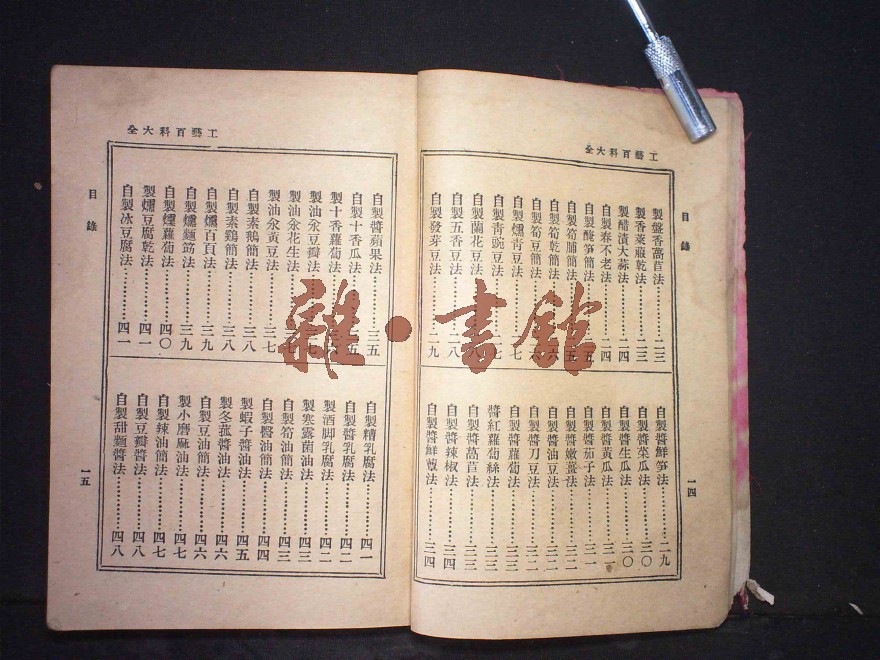 工藝百科大全
目錄
製盤香萵苣法…………二三
製香菜菔乾法…………二三
製醋漬大蒜法…………二四
自製春不老法…………二四
自製醃筍簡法…………五
自製筍脯簡法…………五
自製筍乾簡法…………六
自製筍豆簡法…………六
自製燻青豆法…………七
自製青豌豆法…………七
自製蘭花豆法…………八
自製五香豆法…………二八
自製發芽豆法…………二九
自製醬鮮筍法…………二九
自製醬菜瓜法…………三〇
自製醬生瓜法…………三〇
自製醬黃瓜法…………三一
自製醬茄子法…………三一
自製醬嫩薑法…………三二
自製醬油豆法…………三二
自製醬刀豆法…………三二
自製醬蘿蔔法…………三三
醬紅蘿蔔絲法…………三三
自製醬萵苣法…………三三
自製醬辣椒法…………三四
自製醬鮮蕈法…………三四
一四
工藝百科大全
目錄
自製醬蘋果法…………三五
自製十香瓜法…………三五
製十香蘿蔔法…………三六
製油汆豆瓣法…………三七
製油汆花生法…………三七
製油汆黃豆法…………三七
自製素鵝簡法…………三八
自製素鷄簡法…………三八
自製燻百頁法…………三九
自製燻麵筋法…………三九
自製燻蘿蔔法…………四〇
製燻豆腐乾法…………四一
自製冰豆腐法…………四一
自製糟乳腐法…………四一
自製醬乳腐法…………四二
製酒脚乳腐法…………四二
製寒露菌油法…………四三
自製筍油簡法…………四三
自製醬油簡法…………四四
製蝦子醬油法…………四五
製冬菰醬油法…………四六
自製豆油簡法…………四六
製小磨麻油法…………四七
自製辣油簡法…………四七
自製豆瓣醬法…………四八
自製甜麵醬法…………四八
一五
雜·書館